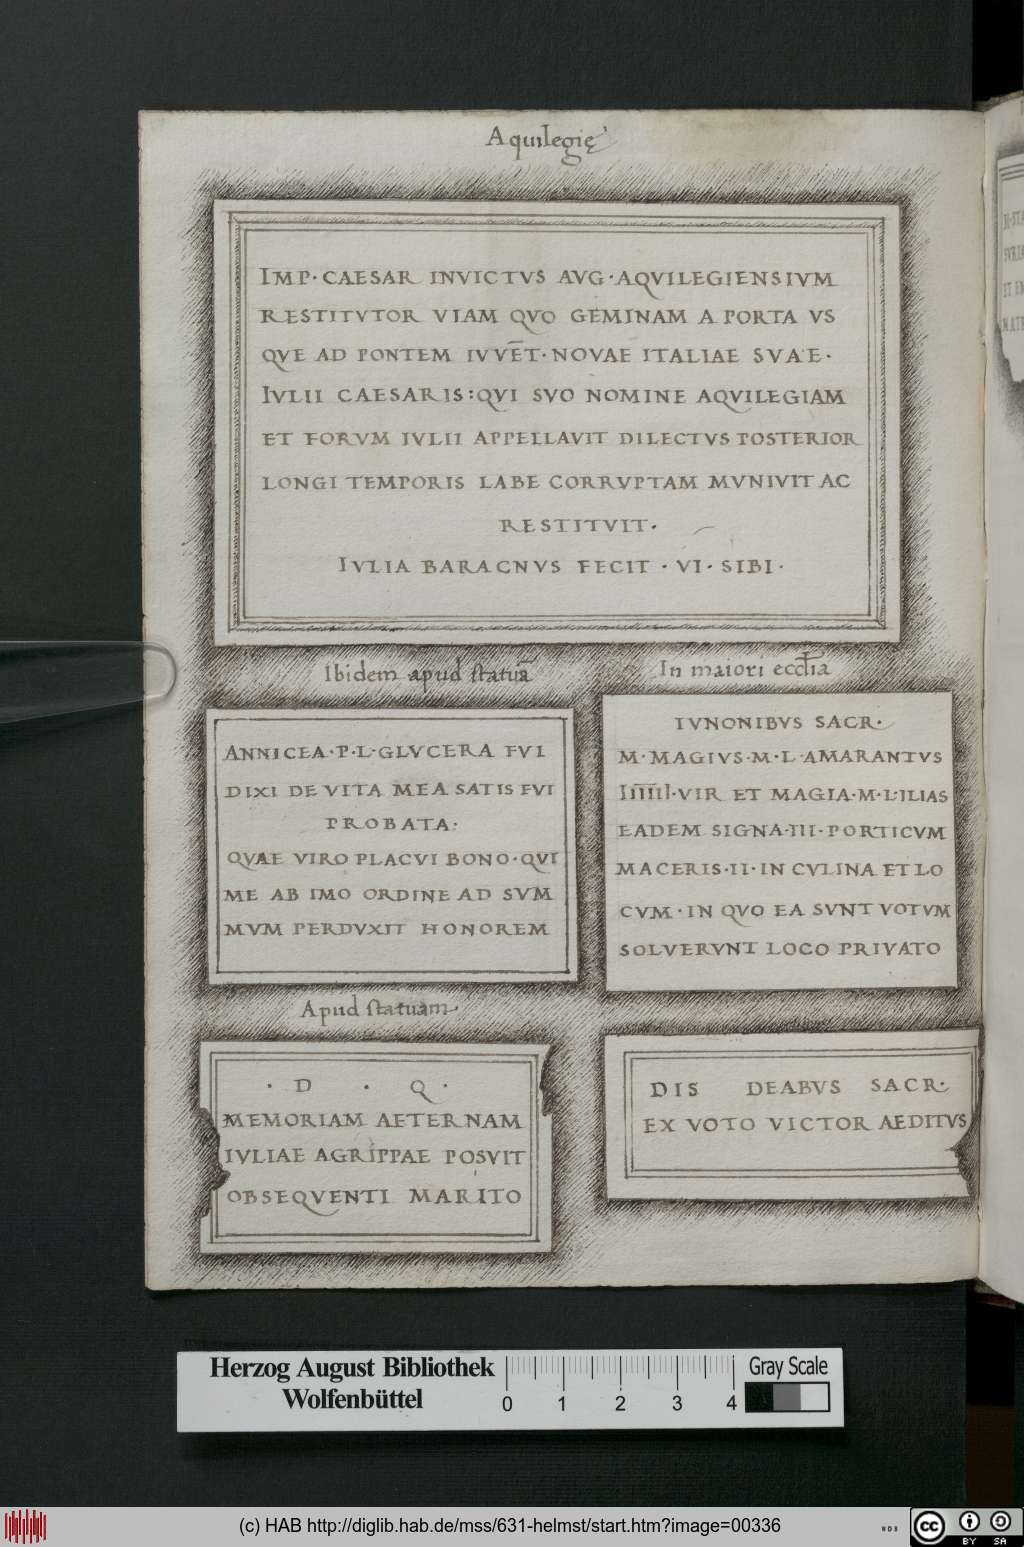 Aquilegię
IMP· CAESAR INVICTVS AVG·AQVILEGIENSIVM
RESTITVTOR VIAM QVO GEMINAM A PORTA VS
QVE AD PONTEM IVVĒT·NOVAE ITALIAE SVAE·
IVLII CAESARIS:QVI SVO NOMINE AQVILEGIAM
ET FORVM IVLII APPELLAVIT DILECTVS POSTERIOR
LONGI TEMPORIS LABE CORRVPTAM MVNIVIT AC
RESTITVIT·
IVLIA BARAGNVS FECIT · VI · SIBI ·
Ibidem apud statuā
ANNICEA·P·L·GLVCERA FVI
DIXI DE VITA MEA SATIS FVI
PROBATA:
QVAE VIRO PLACVI BONO·QVI
ME AB IMO ORDINE AD SVM
MVM PERDVXIT HONOREM
In maiori eccl̄ia
IVNONIBVS SACR·
M·MAGIVS·M·L·AMARANTVS
IIIIII·VIR ET MAGIA·M·L·ILIAS
EADEM SIGNA·III·PORTICVM
MACERIS·II·IN CVLINA ET LO
CVM·IN QVO EA SVNT VOTVM
SOLVERVNT LOCO PRIVATO
Apud statuam
· D · Q ·
MEMORIAM AETERNAM
IVLIAE AGRIPPAE POSVIT
OBSEQVENTI MARITO
DIS DEABVS SACR·
EX VOTO VICTOR AEDITVS
Herzog August Bibliothek
Wolfenbüttel
0 1 2 3 4
Gray Scale
(c) HAB http://diglib.hab.de/mss/631-helmst/start.htm?image=00336
WDB
cc BY SA